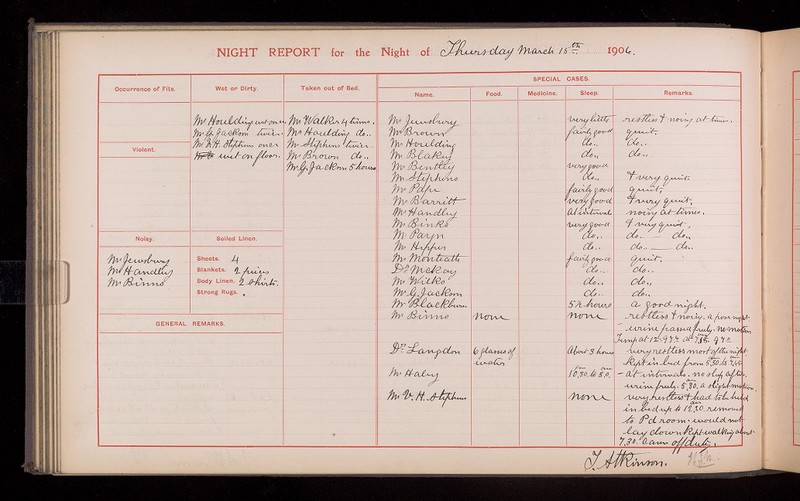 NIGHT REPORT for the Night of Thursday March 15th 1906.
SPECIAL CASES.
Occurrence of Fits. Wet or Dirty. Taken out of Bed. Name. Food. Medicine. Sleep. Remarks.
Mr Houlding wet once Mr Walker 4 times. Mr Jewsbury very little restless & noisy at times.
Mr G. Jackson twice. Mr Houlding do.. Mr Brown fairly good quiet.
Mr W.H. Stephens once Mr Stephens twice Mr Houlding do.. do..
Violent.
wet on floor. Mr Brown do.. Mr Blakey do.. do..
Mr G. Jackson 5 hours Mr Bentley very good
Mr Stephens do.. & very quiet
Mr Pape fairly good quiet,
Mr Barritt very good & very quiet.
Mr Handley at intervals noisy at times.
Mr Binks very good & very quiet
Noisy. Soiled Linen.
Mr Payn do.. do.. do..
Mr Hipper do.. do.. do..
Mr Jewsbury Sheets. 4 Mr Monteath fairly good quiet.
Mr Handley Blankets. 2 pieces Dr McKay do.. do..
Mr Binns Body Linen. 2 shirts. Mr Wilks do.. do..
Strong Rugs. Mr G. Jackson do.. do..
Mr Blackburn 5½ hours a good night.
GENERAL REMARKS.
Mr Binns none none restless & noisy. a poor night
urine passed freely. no motion
Temp at 12.
Dr Langdon 6 glasses of water about 3 hours very restless most of the night
Kept in bed from 5.30 to
Mr Haley 10.30 to 5.0. at intervals. no sleep after.
urine freely. 5.30. a slight motion.
Mr W. H. Stephens none very restless & had to be held
in bed up to 12.30 removed
to Pd room: would not
lay down Kept walking about
7.30. a.m off duty.
J. Atkinson.